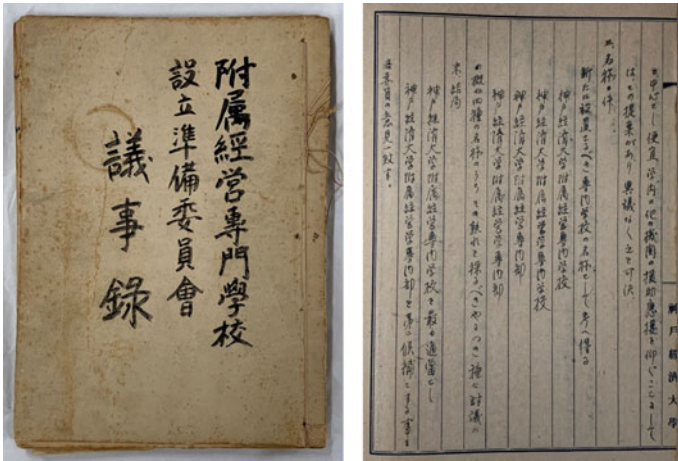 附属経営専門學校
設立準備委員會
議事録
を中心とし便宜、学内の他の機関の援助応援を仰ぐことにして
は、との提案があり異議なく之を可決。
二、名称の件
新たに設置さるべき専門学校の名称として考へ得る
神戸経済大学附属経営学専門学校
神戸経済大学附属経営専門部
神戸経済大学附属経営学専門学校
神戸経済大学附属経営専門部
神戸経済大学附属経営学専門部
の数四種の名称のうちその孰れを採るべきやにつき種々討議の
末、結局
神戸経済大学附属経営専門学校を最も適当とし
神戸経済大学附属経営学専門部を第二候補とする事に
各委員の意見一致す。
神戸経済大学